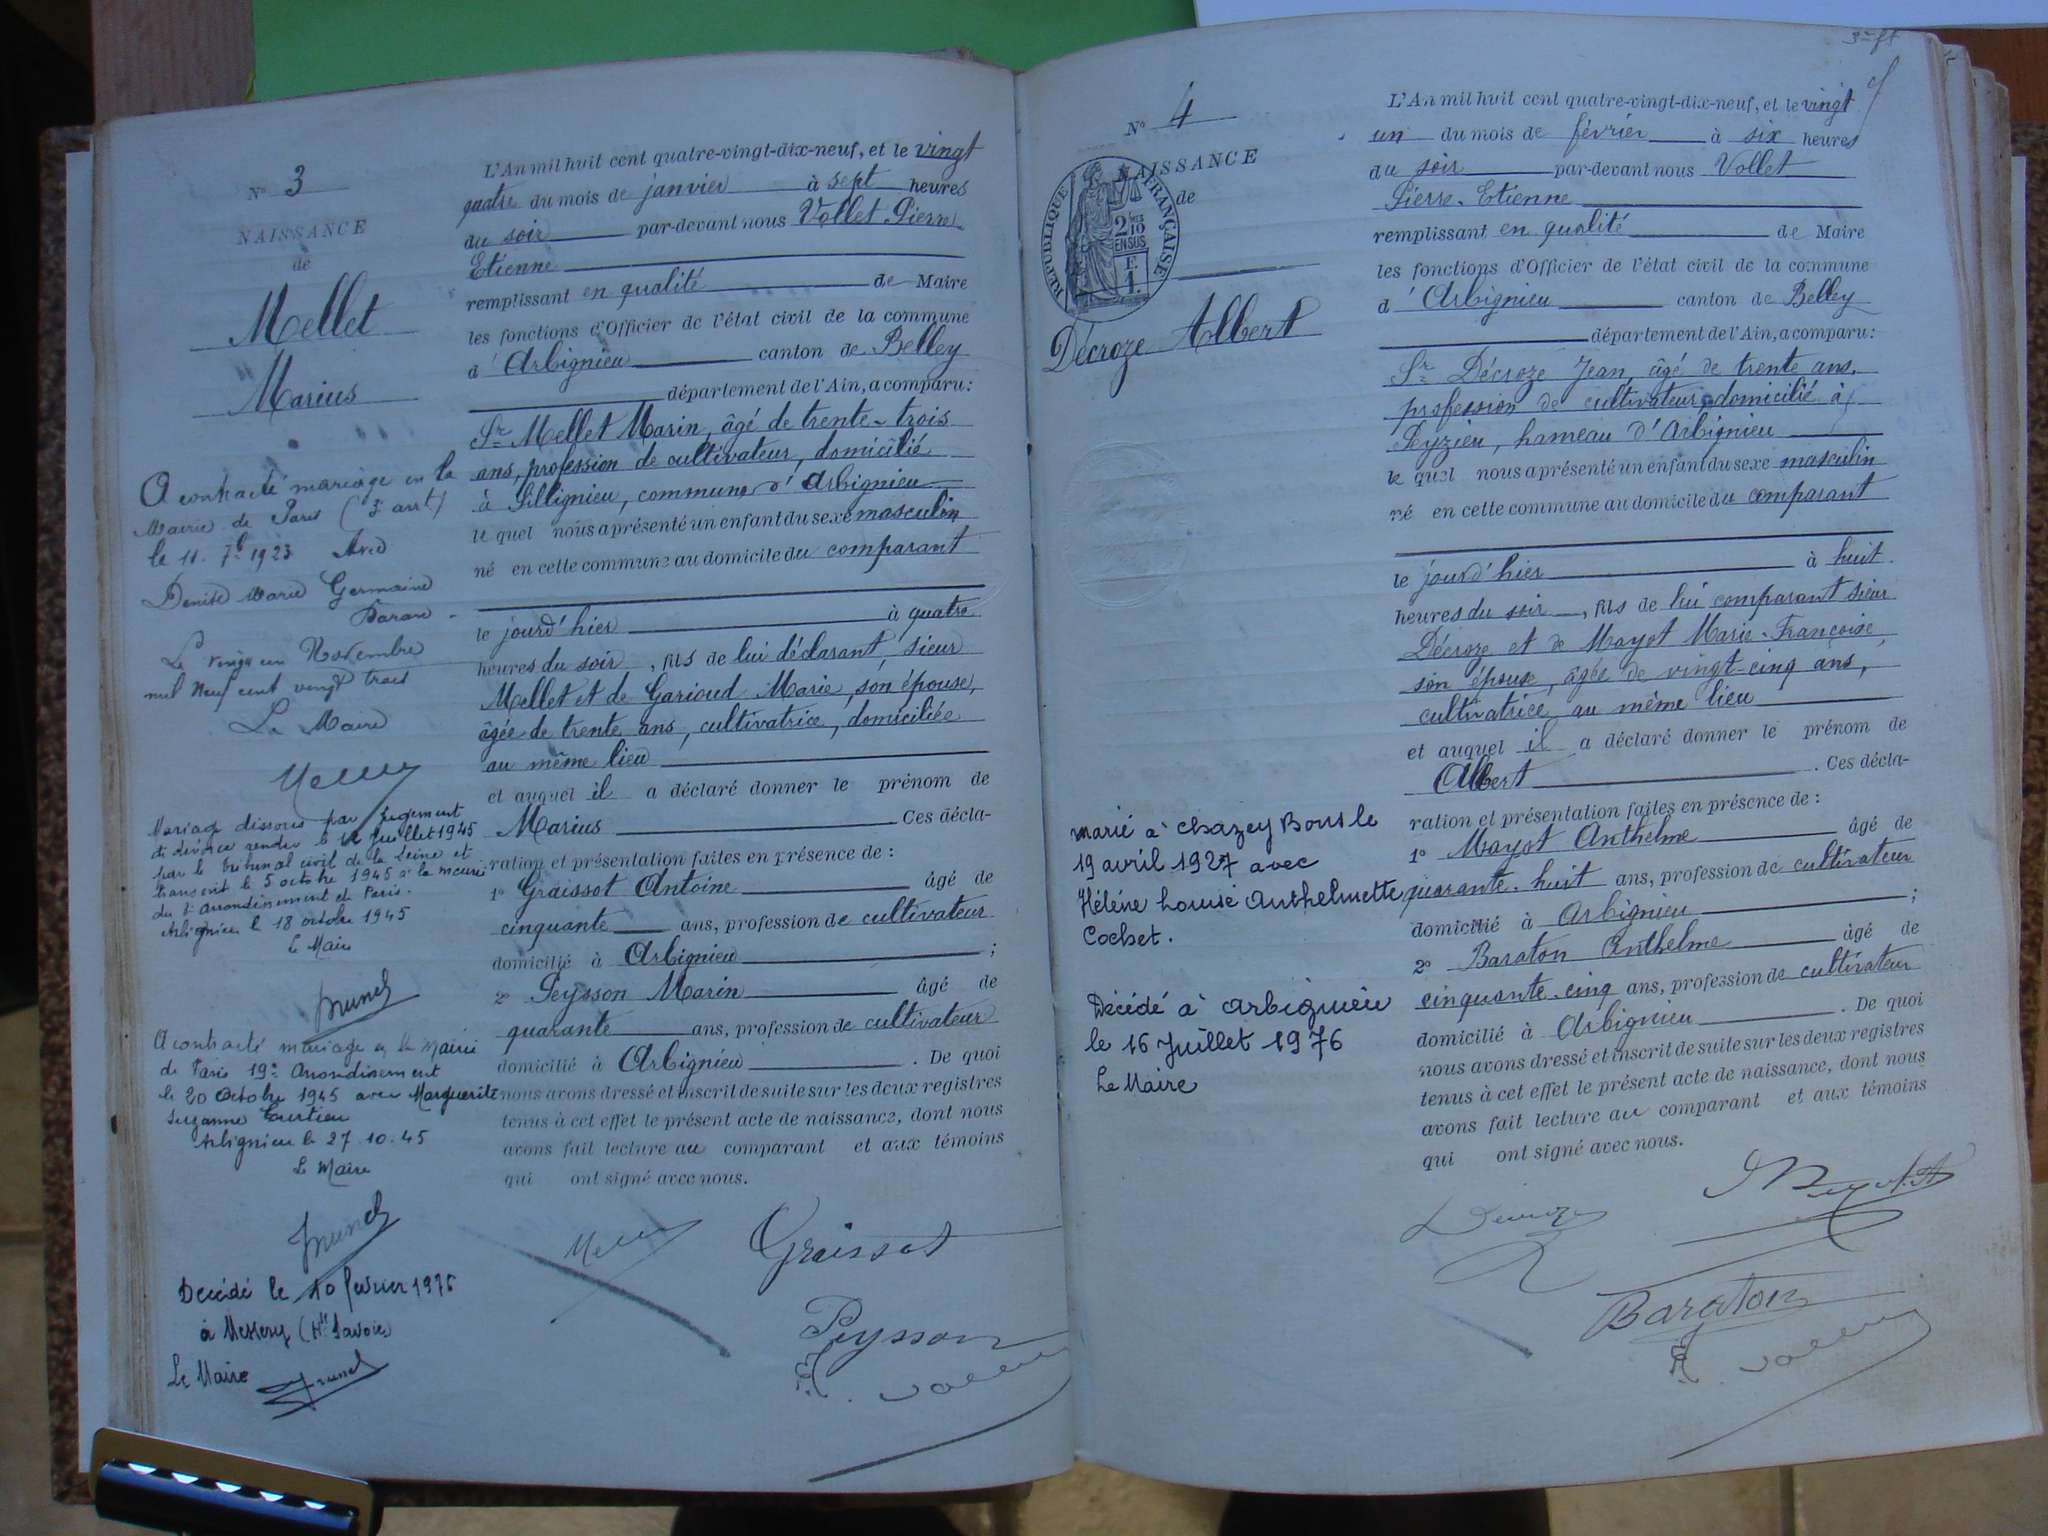 N° 3
NAISSANCE
de
Mellet
Marius
A contracté mariage en la
Mairie de Paris (3e arrt)
le 11. 7b 1923 Avec
Denise Marie Germaine
Le vingt un Novembre
mil neuf cent vingt trois
Le Maire
Mariage dissous par jugement
de divorce rendu le 12 Juillet 1945
par le tribunal civil de la Seine et
transcrit le 5 octobre 1945 à la mairie
du arrondissement de Paris.
Arbignieu le 18 octobre 1945
Le Maire
A contracté mariage en la Mairie
de Paris 19e Arrondissement
le 20 octobre 1945 avec Marguerite
Suzanne
Arbignieu le 27.10.45
Le Maire
Décédé le 10 février 1976
à Messery (Hte Savoie)
Le Maire
L'An mil huit cent quatre-vingt-dix-neuf, et le vingt
quatre du mois de janvier à sept heures
du soir par-devant nous Vollet Pierre
Etienne
remplissant en qualité de Maire
les fonctions d'Officier de l'état civil de la commune
d'Arbignieu canton de Belley
département de l'Ain, a comparu:
Sr Mellet Marin, âgé de trente-trois
ans, profession de cultivateur, domicilié
à Sillignieu, commune d'Arbignieu
le quel nous a présenté un enfant du sexe masculin
né en cette commune au domicile du comparant
le jourd'hier à quatre
heures du soir, fils de lui déclarant, sieur
Mellet et de Garioud Marie, son épouse,
âgée de trente ans, cultivatrice, domiciliée
au même lieu
et auquel il a déclaré donner le prénom de
Marius Ces décla-
ration et présentation faites en présence de :
1° Graissot Antoine âgé de
cinquante ans, profession de cultivateur
domicilié à Arbignieu ;
2° Peysson Marin âgé de
quarante ans, profession de cultivateur
domicilié à Arbignieu . De quoi
nous avons dressé et inscrit de suite sur les deux registres
tenus à cet effet le présent acte de naissance, dont nous
avons fait lecture au comparant et aux témoins
qui ont signé avec nous.
Graissot
Peysson
3e ft
N° 4
NAISSANCE
de
RÉPUBLIQUE FRANÇAISE
2/10
EN SUS
Décroze Albert
marié à Chazey Bons le
19 avril 1927 avec
Hélène Louise Anthelmette
Cochet.
Décédé à Arbignieu
le 16 Juillet 1976
Le Maire
L'An mil huit cent quatre-vingt-dix-neuf, et le vingt
un du mois de février à six heures
du soir par-devant nous Vollet
Pierre-Etienne
remplissant en qualité de Maire
les fonctions d'Officier de l'état civil de la commune
d'Arbignieu canton de Belley
département de l'Ain, a comparu:
Sr Décroze Jean, âgé de trente ans,
profession de cultivateur, domicilié à
Peyzieu, hameau d'Arbignieu
le quel nous a présenté un enfant du sexe masculin
né en cette commune au domicile du comparant
le jourd'hier à huit
heures du soir, fils de lui comparant sieur
Décroze et de Mayot Marie-Françoise,
son épouse, âgée de vingt-cinq ans,
cultivatrice au même lieu
et auquel il a déclaré donner le prénom de
Albert . Ces décla-
ration et présentation faites en présence de :
1° Mayot Anthelme âgé de
quarante-huit ans, profession de cultivateur
domicilié à Arbignieu ;
2° Baraton Anthelme âgé de
cinquante-cinq ans, profession de cultivateur
domicilié à Arbignieu . De quoi
nous avons dressé et inscrit de suite sur les deux registres
tenus à cet effet le présent acte de naissance, dont nous
avons fait lecture au comparant et aux témoins
qui ont signé avec nous.
Décroze
Baraton